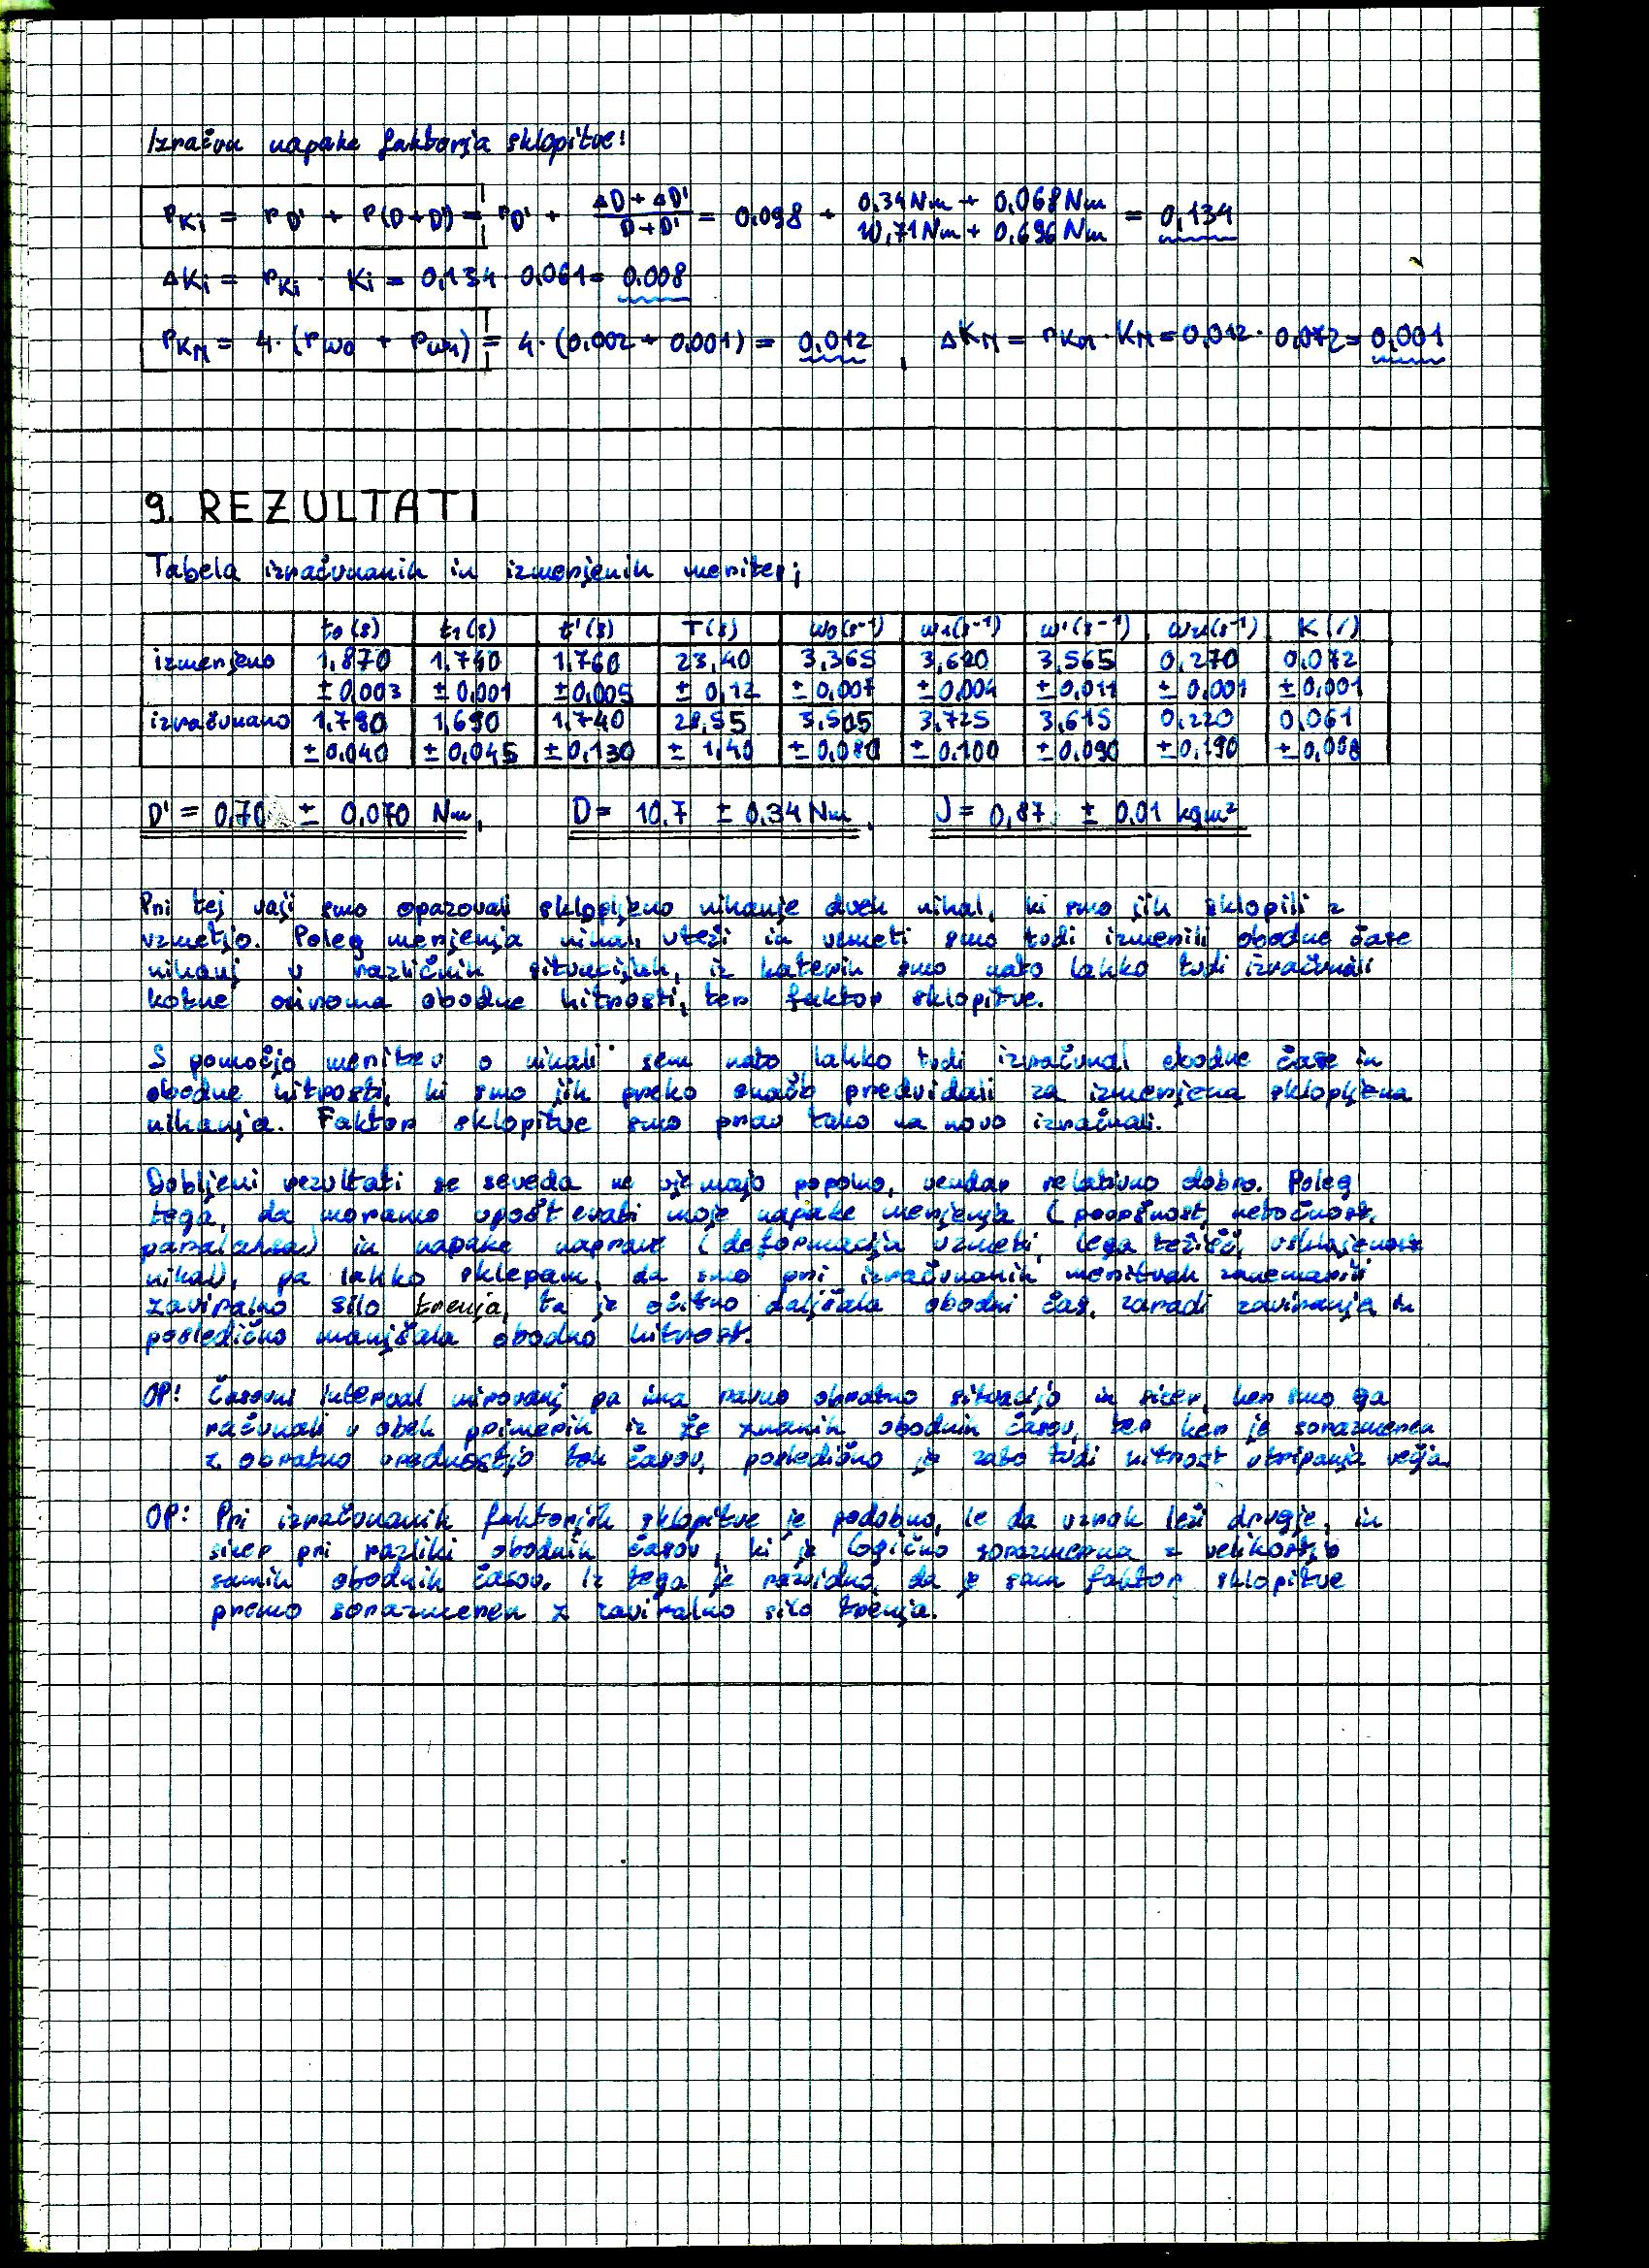 Izračun napake faktorja sklopitve:
r_Ki = r_D' + r(D+D') = r_D' + (ΔD + ΔD')/(D+D') = 0,098 + (0,34 Nm + 0,068 Nm)/(10,71 Nm + 0,696 Nm) = 0,134
ΔKi = r_Ki · Ki = 0,134 · 0,061 = 0,008
r_KM = 4 · (r_ω0 + r_ω1) = 4 · (0,002 + 0,001) = 0,012 , ΔK_M = r_KM · K_M = 0,012 · 0,072 = 0,001
9. REZULTATI
Tabela izračunanih in izmerjenih meritev:
t0 (s) t1 (s) t' (s) T (s) ω0 (s-1) ω1 (s-1) ω' (s-1) ωu (s-1) K (/)
izmerjeno 1,870 1,740 1,760 23,40 3,365 3,620 3,565 0,270 0,072
± 0,003 ± 0,001 ± 0,005 ± 0,12 ± 0,007 ± 0,004 ± 0,011 ± 0,001 ± 0,001
izračunano 1,790 1,690 1,740 28,55 3,505 3,725 3,615 0,220 0,061
± 0,040 ± 0,045 ± 0,130 ± 1,40 ± 0,080 ± 0,100 ± 0,090 ± 0,190 ± 0,008
D' = 0,70 ± 0,070 Nm, D = 10,7 ± 0,34 Nm, J = 0,87 ± 0,01 kgm²
Pri tej vaji smo opazovali sklopljeno nihanje dveh nihal, ki smo jih sklopili z
vzmetjo. Poleg merjenja nihal, uteži in vzmeti smo tudi izmerili obodne čase
nihanj v različnih situacijah, iz katerih smo nato lahko tudi izračunali
kotne oziroma obodne hitrosti, ter faktor sklopitve.
S pomočjo meritev o nihali sem nato lahko tudi izračunal obodne čase in
obodne hitrosti, ki smo jih preko enačb predvidali za izmerjena sklopljena
nihanja. Faktor sklopitve smo prav tako na novo izračunali.
Dobljeni rezultati se seveda ne ujemajo popolno, vendar relativno dobro. Poleg
tega, da moramo upoštevati moje napake merjenja (površnost, netočnost,
paralaksa) in napake naprave (deformacija vzmeti, lega težišč, usklajenost
nihal), pa lahko sklepam, da smo pri izračunanih meritvah zanemarili
zaviralno silo trenja, ta je očitno daljšala obodni čas, zaradi zaviranja in
posledično manjšala obodno hitrost.
OP: Časovni interval mirovanj pa ima ravno obratno situacijo in sicer, ker smo ga
računali v obeh primerih iz že znanih obodnih časov, ter ker je sorazmeren
z obratno vrednostjo teh časov, posledično je zato tudi hitrost utripanja večja.
OP: Pri izračunanih faktorjih sklopitve je podobno, le da vzrok leži drugje, in
sicer pri razliki obodnih časov, ki je logično sorazmerna z velikostjo
samih obodnih časov. Iz tega je razvidno, da je sam faktor sklopitve
premo sorazmeren z zaviralno silo trenja.